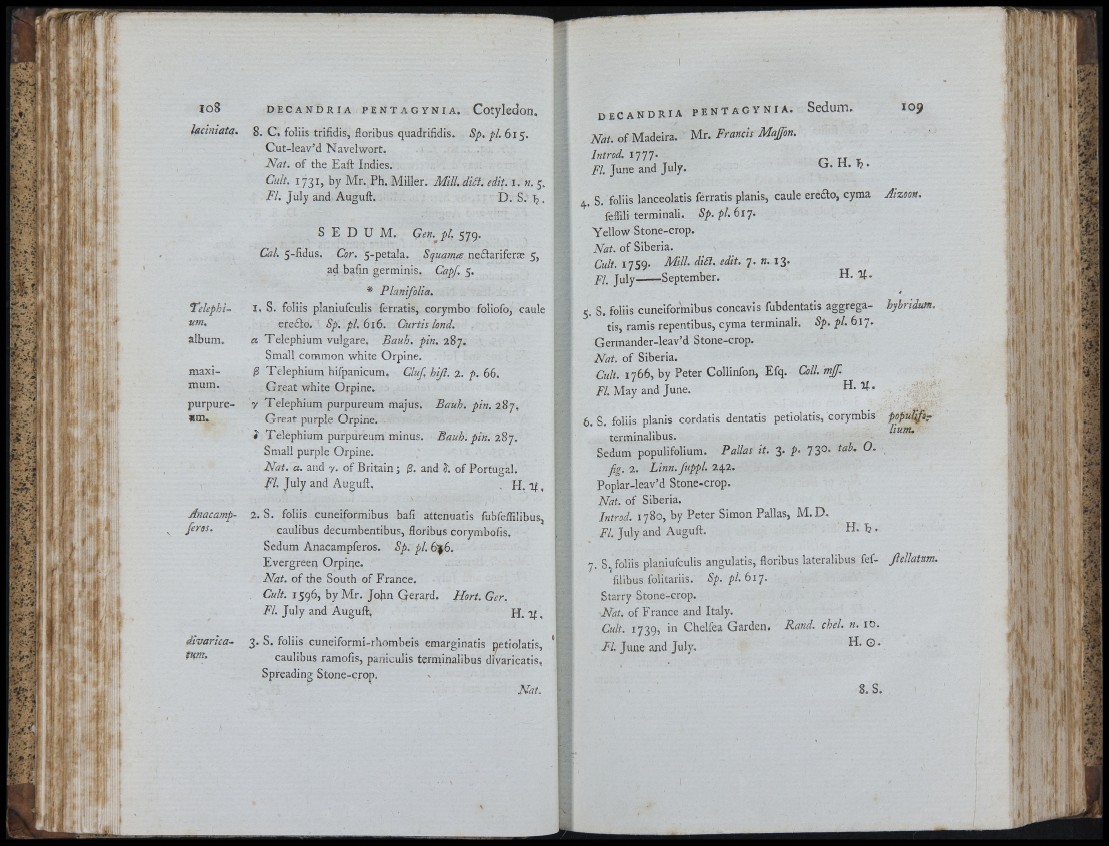 108 DECANDRIA PENTAGYNIA. Cotyledon.
laciniata. 8. C. foliis trifidis, floribus quadrifidis. Sp. pl. 615.
Cut-leav'd Navelwort.
Nat. of the Eaſt Indies.
Cult. 1731, by Mr. Ph. Miller. Mill. dict. edit. 1. n. 5.
Fl. July and Auguſt. D. S. ♄.
SEDUM. Gen. pl. 579.
Cal. 5-fidus. Cor. 5-petala. Squamæ nectariferæ 5,
ad baſin germinis. Capſ. 5.
* Planifolia.
Telephi- 1. S. foliis planiuſculis ſerratis, corymbo folioſo, caule
um. erecto. Sp. pl. 616. Curtis lond.
album. α Telephium vulgare. Bauh. pin. 287.
Small common white Orpine.
maxi- β Telephium hiſpanicum. Cluſ. hiſt. 2. p. 66.
mum. Great white Orpine.
purpure- γ Telephium purpureum majus. Bauh. pin. 287.
um. Great purple Orpine.
δ Telephium purpureum minus. Bauh. pin. 287.
Small purple Orpine.
Nat. α. and γ. of Britain; β. and δ. of Portugal.
Fl. July and Auguſt. H. ♃.
Anacamp- 2. S. foliis cuneiformibus baſi attenuatis ſubſeſſilibus,
ſeros. caulibus decumbentibus, floribus corymboſis.
Sedum Anacampſeros. Sp. pl. 616.
Evergreen Orpine.
Nat. of the South of France.
Cult. 1596, by Mr. John Gerard. Hort. Ger.
Fl. July and Auguſt. H. ♃.
divarica- 3. S. foliis cuneiformi-rhombeis emarginatis petiolatis,
tum. caulibus ramoſis, paniculis terminalibus divaricatis.
Spreading Stone-crop.
Nat.
DECANDRIA PENTAGYNIA. Sedum. 109
Nat. of Madeira. Mr. Francis Maſſon.
Introd. 1777.
Fl. June and July. G. H. ♄.
4. S. foliis lanceolatis ſerratis planis, caule erecto, cyma Aizoon.
ſeſſili terminali. Sp. pl. 617.
Yellow Stone-crop.
Nat. of Siberia.
Cult. 1759. Mill. dict. edit. 7. n. 13.
Fl. July——September. H. ♃.
5. S. foliis cuneiformibus concavis ſubdentatis aggrega- hybridum.
tis, ramis repentibus, cyma terminali. Sp. pl. 617.
Germander-leav'd Stone-crop.
Nat. of Siberia.
Cult. 1766, by Peter Collinſon, Eſq. Coll. mſſ.
Fl. May and June. H. ♃.
6. S. foliis planis cordatis dentatis petiolatis, corymbis populifo-
terminalibus. lium.
Sedum populifolium. Pallas it. 3. p. 730. tab. O.
fig. 2. Linn. ſuppl. 242.
Poplar-leav'd Stone-crop.
Nat. of Siberia.
Introd. 1780, by Peter Simon Pallas, M.D.
Fl. July and Auguſt. H. ♄.
7. S. foliis planiuſculis angulatis, floribus lateralibus ſeſ- ſtellatum.
ſilibus ſolitariis. Sp. pl. 617.
Starry Stone-crop.
Nat. of France and Italy.
Cult. 1739, in Chelſea Garden. Rand. chel. n. 10.
Fl. June and July. H. ☉.
8. S.